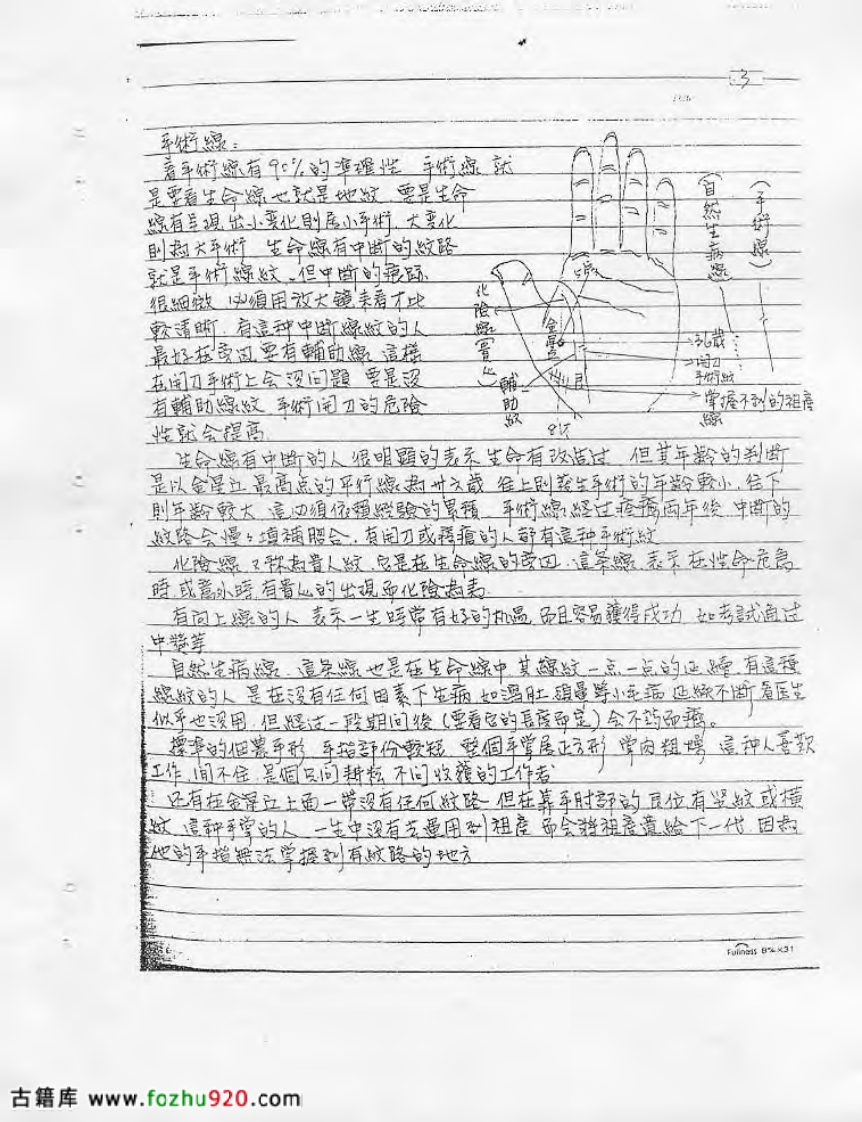 3
手術線：
看手術線有90%的準確性 手術線 就
是要看生命線也就是地紋 要是生命
線有呈現出小变化則居小手術，大变化
則為大手術 生命線有中断的紋路
就是手術線紋，但中断的痕跡
很細微 必須用放大鏡来看才比
較清晰，有這种中断線紋的人
最好在旁边要有輔助線 這樣
在開刀手術上会沒问題 要是沒
有輔助線紋 手術開刀的危險
性就会提高
生命線有中断的人 很明顯的表示生命有改造过 但其年齡的判断
是以金星丘 最高点的平行線為卅六歲 往上則發生手術的年齡較小，往下
則年齡較大 這必須依賴經驗的累積 手術線 經过痊癒两年後 中断的
紋路会慢々填補膠合，有開刀或 的人都有這种手術紋
化險線 又称為貴人紋 它是在生命線的旁边，這条線 表示在性命危急
時 或 時 有貴人的出現而化險為夷
有向上線的人 表示一生時常有好的机遇 而且容易獲得成功 如考試通过
中獎等
自然生病線 這条線也是在生命線中 其線紋一点一点的延續，有這種
線紋的人 是在沒有任何因素下生病，如瀉肚 頭暈等小毛病 延綿不断 看医生
似乎也沒用，但經过一段期间後（要看它的長度而定）会不药而癒。
標準的個農手形 手指部份較粗 整個手掌居正方形 掌肉粗燥 這种人喜歡
工作，閒不住 是個只问耕耘 不问收穫的工作者
还有在金星丘上面一帶沒有任何紋路 但在靠手肘部的艮位有竖紋或橫
紋，這种手掌的人 一生中沒有去運用到祖產 而会將祖產遺給下一代 因為
他的手指無法掌握到有紋路的地方
（手術線）
（自然生病線）
化險線（貴人）
金星丘
輔助紋
36歲
開刀手術紋
掌握不到的祖產線
Fullness 8¾×31
古籍库 www.fozhu920.com